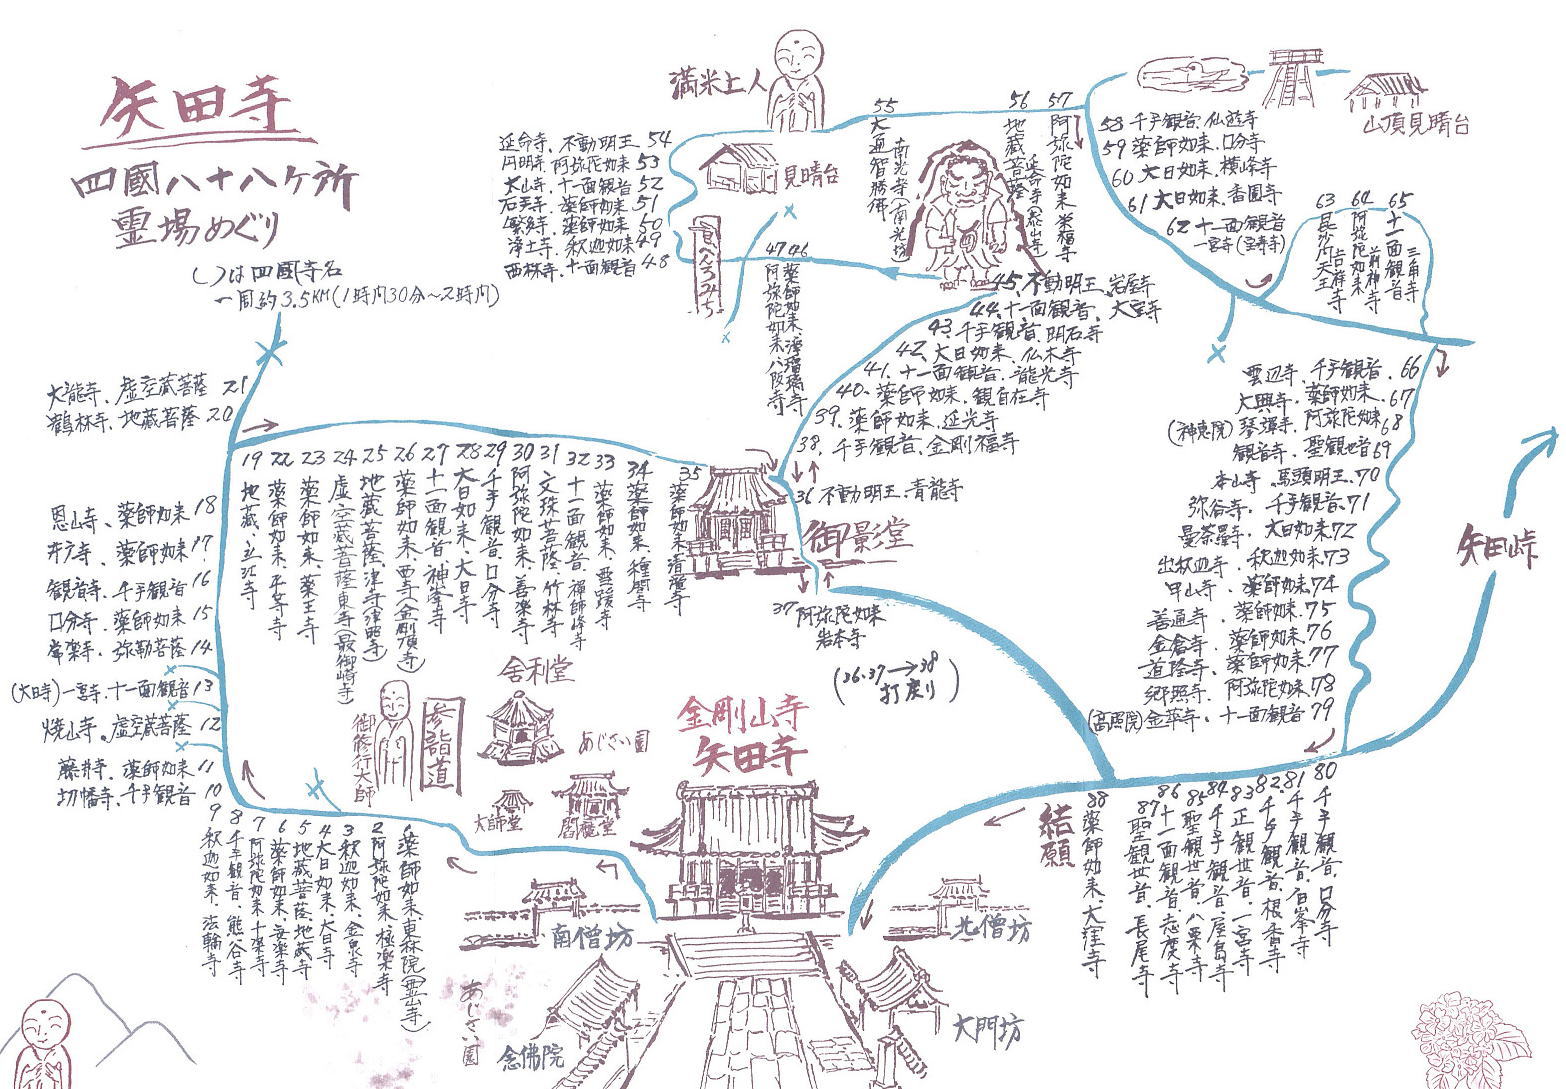 矢田寺
四國八十八ヶ所
霊場めぐり
( )は四國寺名
一周約3.5KM(1時間30分〜2時間)
満米上人
見晴台
山頂見晴台
延命寺、不動明王 54
円明寺、阿弥陀如来 53
太山寺、十一面観音 52
石手寺、薬師如来 51
繁多寺、薬師如来 50
浄土寺、釈迦如来 49
西林寺、十一面観音 48
へんろみち
47 阿弥陀如来、八阪寺
46 薬師如来、浄瑠璃寺
55 大通智勝佛
南光寺(南光坊)
56 地蔵菩薩
延命寺(泰山寺)
57 阿弥陀如来 栄福寺
58 千手観音、仏遊寺
59 薬師如来、口分寺
60 大日如来、横峰寺
61 大日如来、香園寺
62 十一面観音
一宮寺(宝寿寺)
63 毘沙門天王 吉祥寺
64 阿弥陀如来 前神寺
65 十一面観音 三角寺
45、不動明王、岩屋寺
44、十一面観音、大宝寺
43、千手観音、明石寺
42、大日如来、仏木寺
41、十一面観音、龍光寺
40、薬師如来、観自在寺
39、薬師如来、延光寺
38、千手観音、金剛福寺
36 不動明王、青龍寺
御影堂
37 阿弥陀如来
岩本寺
(36.37→38
打戻り)
大龍寺、虚空蔵菩薩 21
鶴林寺、地蔵菩薩 20
恩山寺、薬師如来 18
井戸寺、薬師如来 17
観音寺、千手観音 16
口分寺、薬師如来 15
常楽寺、弥勒菩薩 14
(大日寺)一宮寺、十一面観音 13
焼山寺、虚空蔵菩薩 12
藤井寺、薬師如来 11
切幡寺、千手観音 10
19 地蔵、立江寺
22 薬師如来、平等寺
23 薬師如来、薬王寺
24 虚空蔵菩薩 東寺(最御崎寺)
25 地蔵菩薩、津寺(津照寺)
26 薬師如来、西寺(金剛頂寺)
27 十一面観音、神峯寺
28 大日如来、大日寺
29 千手観音、口分寺
30 阿弥陀如来、善楽寺
31 文殊菩薩、竹林寺
32 十一面観音、禅師峰寺
33 薬師如来、雪蹊寺
34 薬師如来、種間寺
35 薬師如来 清瀧寺
雲辺寺、千手観音、66
大興寺、薬師如来、67
(神恵院)琴弾寺、阿弥陀如来 68
観音寺、聖観世音 69
本山寺、馬頭明王、70
弥谷寺、千手観音、71
曼荼羅寺、大日如来 72
出釈迦寺、釈迦如来 73
甲山寺、薬師如来 74
善通寺、薬師如来 75
金倉寺、薬師如来 76
道隆寺、薬師如来 77
郷照寺、阿弥陀如来 78
(高照院)金華寺、十一面観音 79
矢田峠
舎利堂
御修行大師
参詣道
あじさい園
大師堂
閻魔堂
金剛山寺
矢田寺
結願
88 薬師如来、大窪寺
87 聖観世音、長尾寺
86 十一面観音、志度寺
85 聖観世音、八栗寺
84 千手観音、屋島寺
83 正観世音、一宮寺
82 千手観音、根香寺
81 千手観音、白峯寺
80 千手観音、口分寺
9 釈迦如来、法輪寺
8 千手観音、熊谷寺
7 阿弥陀如来 十楽寺
6 薬師如来、安楽寺
5 地蔵菩薩、地蔵寺
4 大日如来、大日寺
3 釈迦如来、金泉寺
2 阿弥陀如来、極楽寺
1 薬師如来、東林院(霊山寺)
南僧坊
北僧坊
あじさい園
念佛院
大門坊